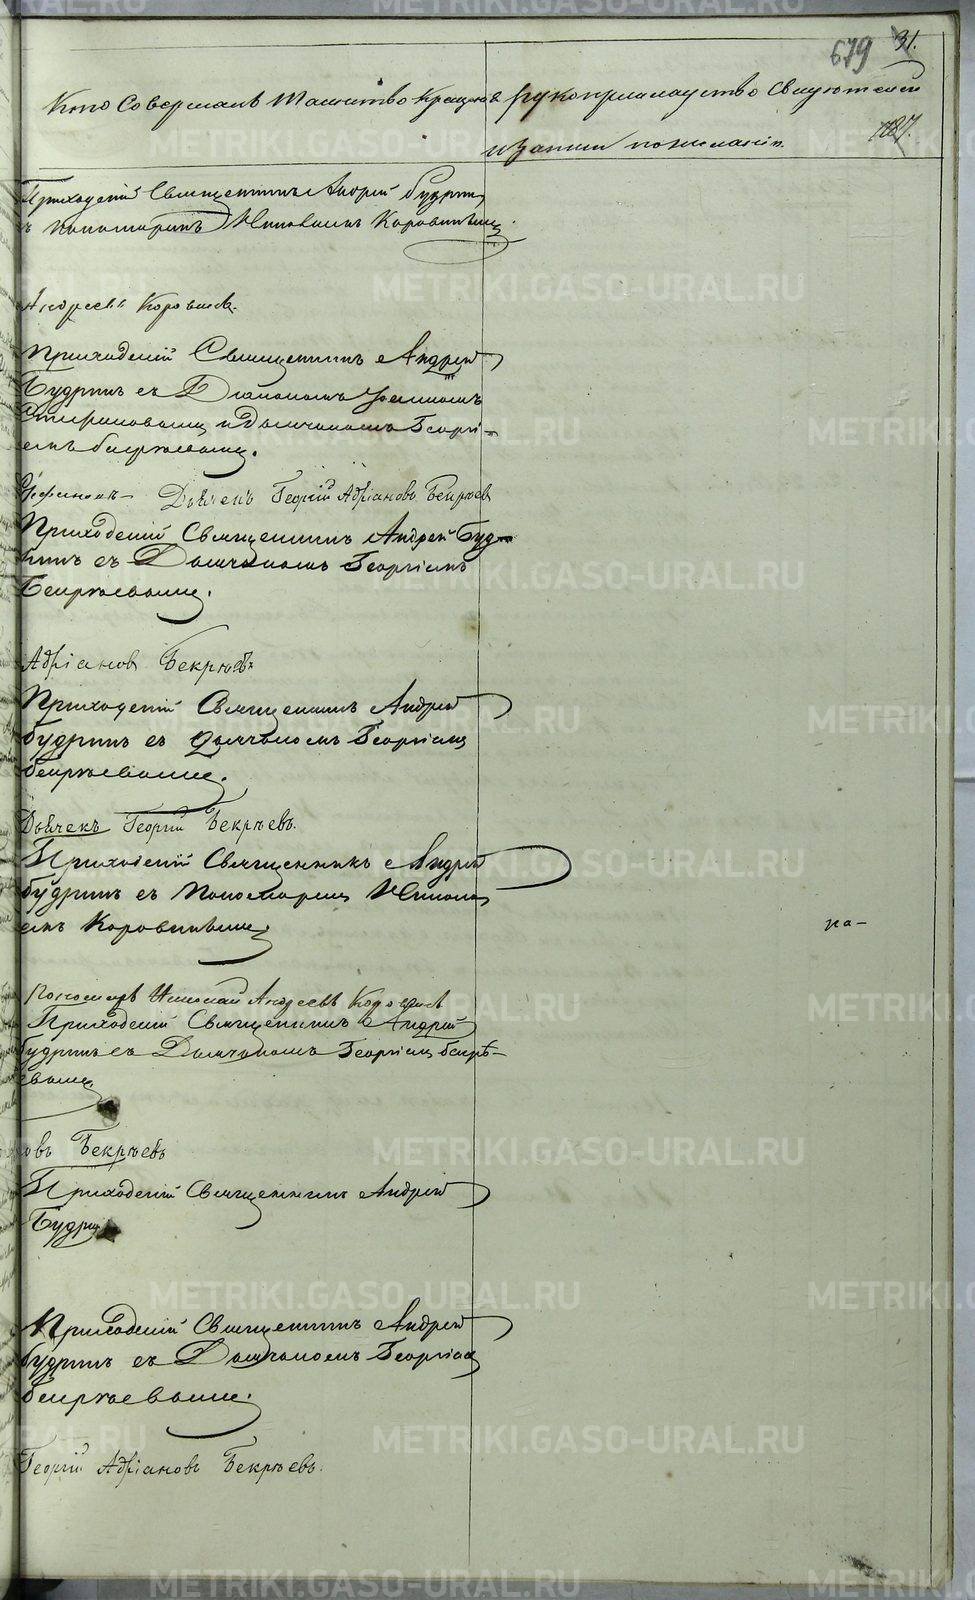 679 31.
Кто совершалъ таинство крещенія
рукоприкладство свидетелей
187.
и записи по желанію.
Приходскій Священникъ Андрей Будринъ
съ пономаремъ Николаемъ Коровинымъ.
Андреевъ Коровинъ.
Приходскій Священникъ Андрей
Будринъ съ Діакономъ
Стефановымъ и Дьячкомъ Георгі-
емъ Бекряевымъ.
Дьячекъ Георгій Адріановъ Бекряев
Приходскій Священникъ Андрей Буд-
ринъ съ Дьячкомъ Георгіемъ
Бекряевымъ.
Адріановъ Бекряевъ
Приходскій Священникъ Андрей
Будринъ съ дьячкомъ Георгіемъ
Бекряевымъ.
Дьячекъ Георгій Бекряевъ.
Приходскій Священникъ Андрей
Будринъ съ Пономаремъ Никола-
емъ Коровинымъ
на-
Пономарь Николай Андреевъ Коровинъ
Приходскій Священникъ Андрей
Будринъ съ Дьячкомъ Георгіемъ Бекря-
евымъ
овъ Бекряевъ
Приходскій Священникъ Андрей
Будринъ
Приходскій Священникъ Андрей
Будринъ съ Дьячкомъ Георгіемъ
Бекряевымъ.
Георгій Адріановъ Бекряевъ.
METRIKI.GASO-URAL.RU